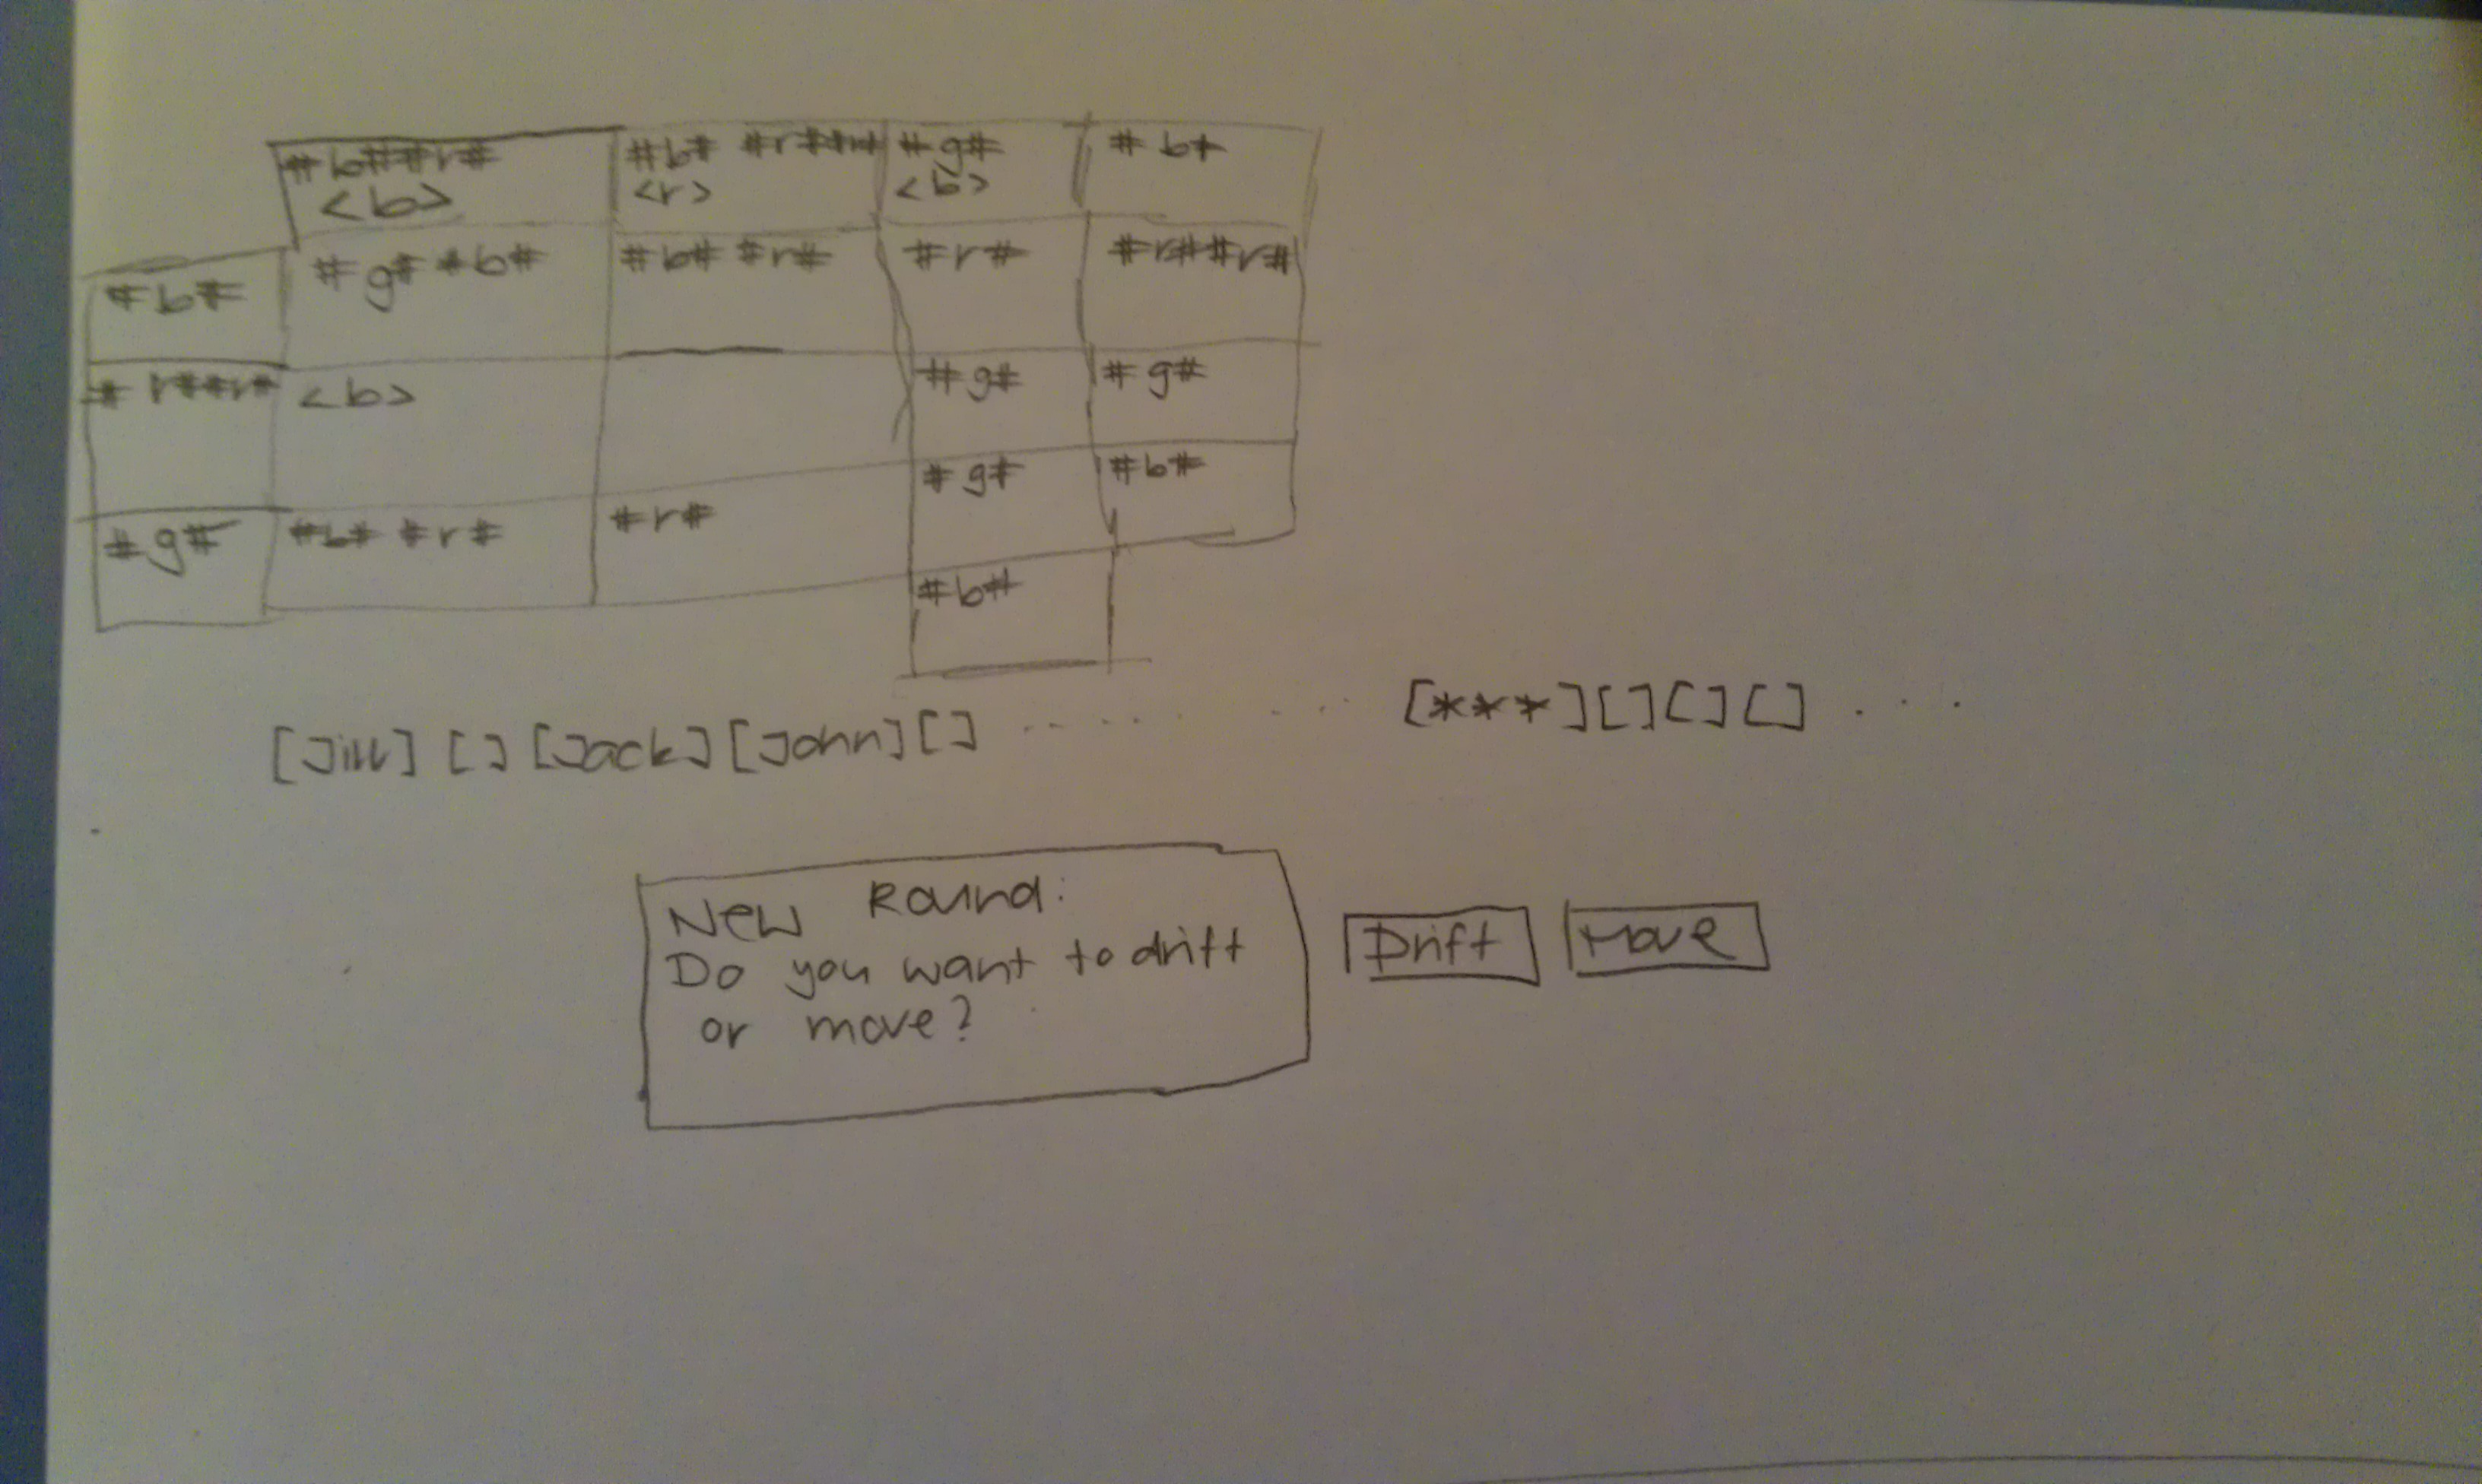 #b##r# #b# #r##r# #g# #b#
<b> <r> <b>
#b# #g# #b# #b# #r# #r# #r##r#
#r##r# <b> #g# #g#
#g# #b# #r# #r# #g# #b#
#b#
[Jill] [] [Jack] [John] [] ........ [***] [] [] [] ...
New Round:
Do you want to drift
or move?
Drift Move